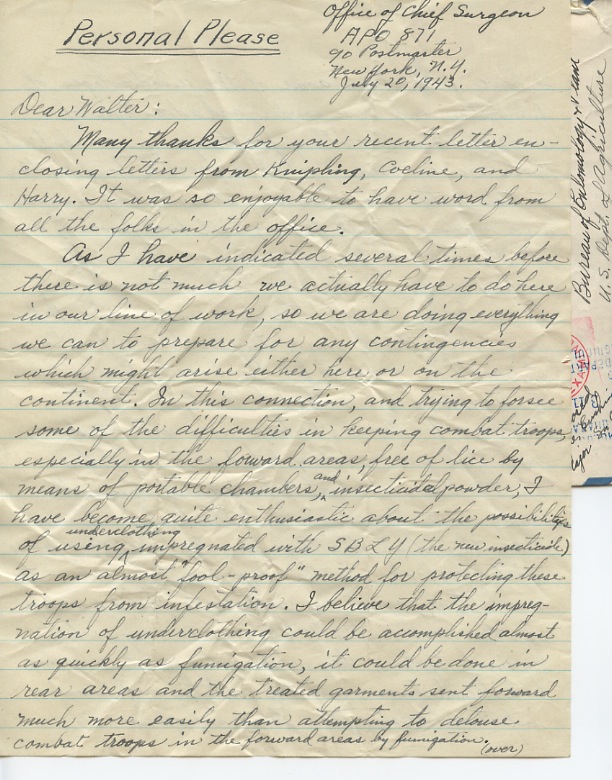 Personal Please
Office of Chief Surgeon
APO 871
c/o Postmaster
New York, N.Y.
July 20, 1943.
Dear Walter:
Many thanks for your recent letter en-
closing letters from Knipling, Cocline, and
Harry. It was so enjoyable to have word from
all the folks in the office.
As I have indicated several times before
there is not much we actually have to do here
in our line of work, so we are doing everything
we can to prepare for any contingencies
which might arise either here or on the
continent. In this connection, and trying to forsee
some of the difficulties in keeping combat troops
especially in the forward areas, free of lice by
means of portable chambers, and insecticidal powder, I
have become quite enthusiastic about the possibilities
of using underclothing impregnated with SBLY (the new insecticide)
as an almost "fool-proof" method for protecting these
troops from infestation. I believe that the impreg-
nation of underclothing could be accomplished almost
as quickly as fumigation, it could be done in
rear areas and the treated garments sent forward
much more easily than attempting to delouse
combat troops in the forward areas by fumigation.
(over)
Bureau of Entomology &
U.S. Dept of Agriculture